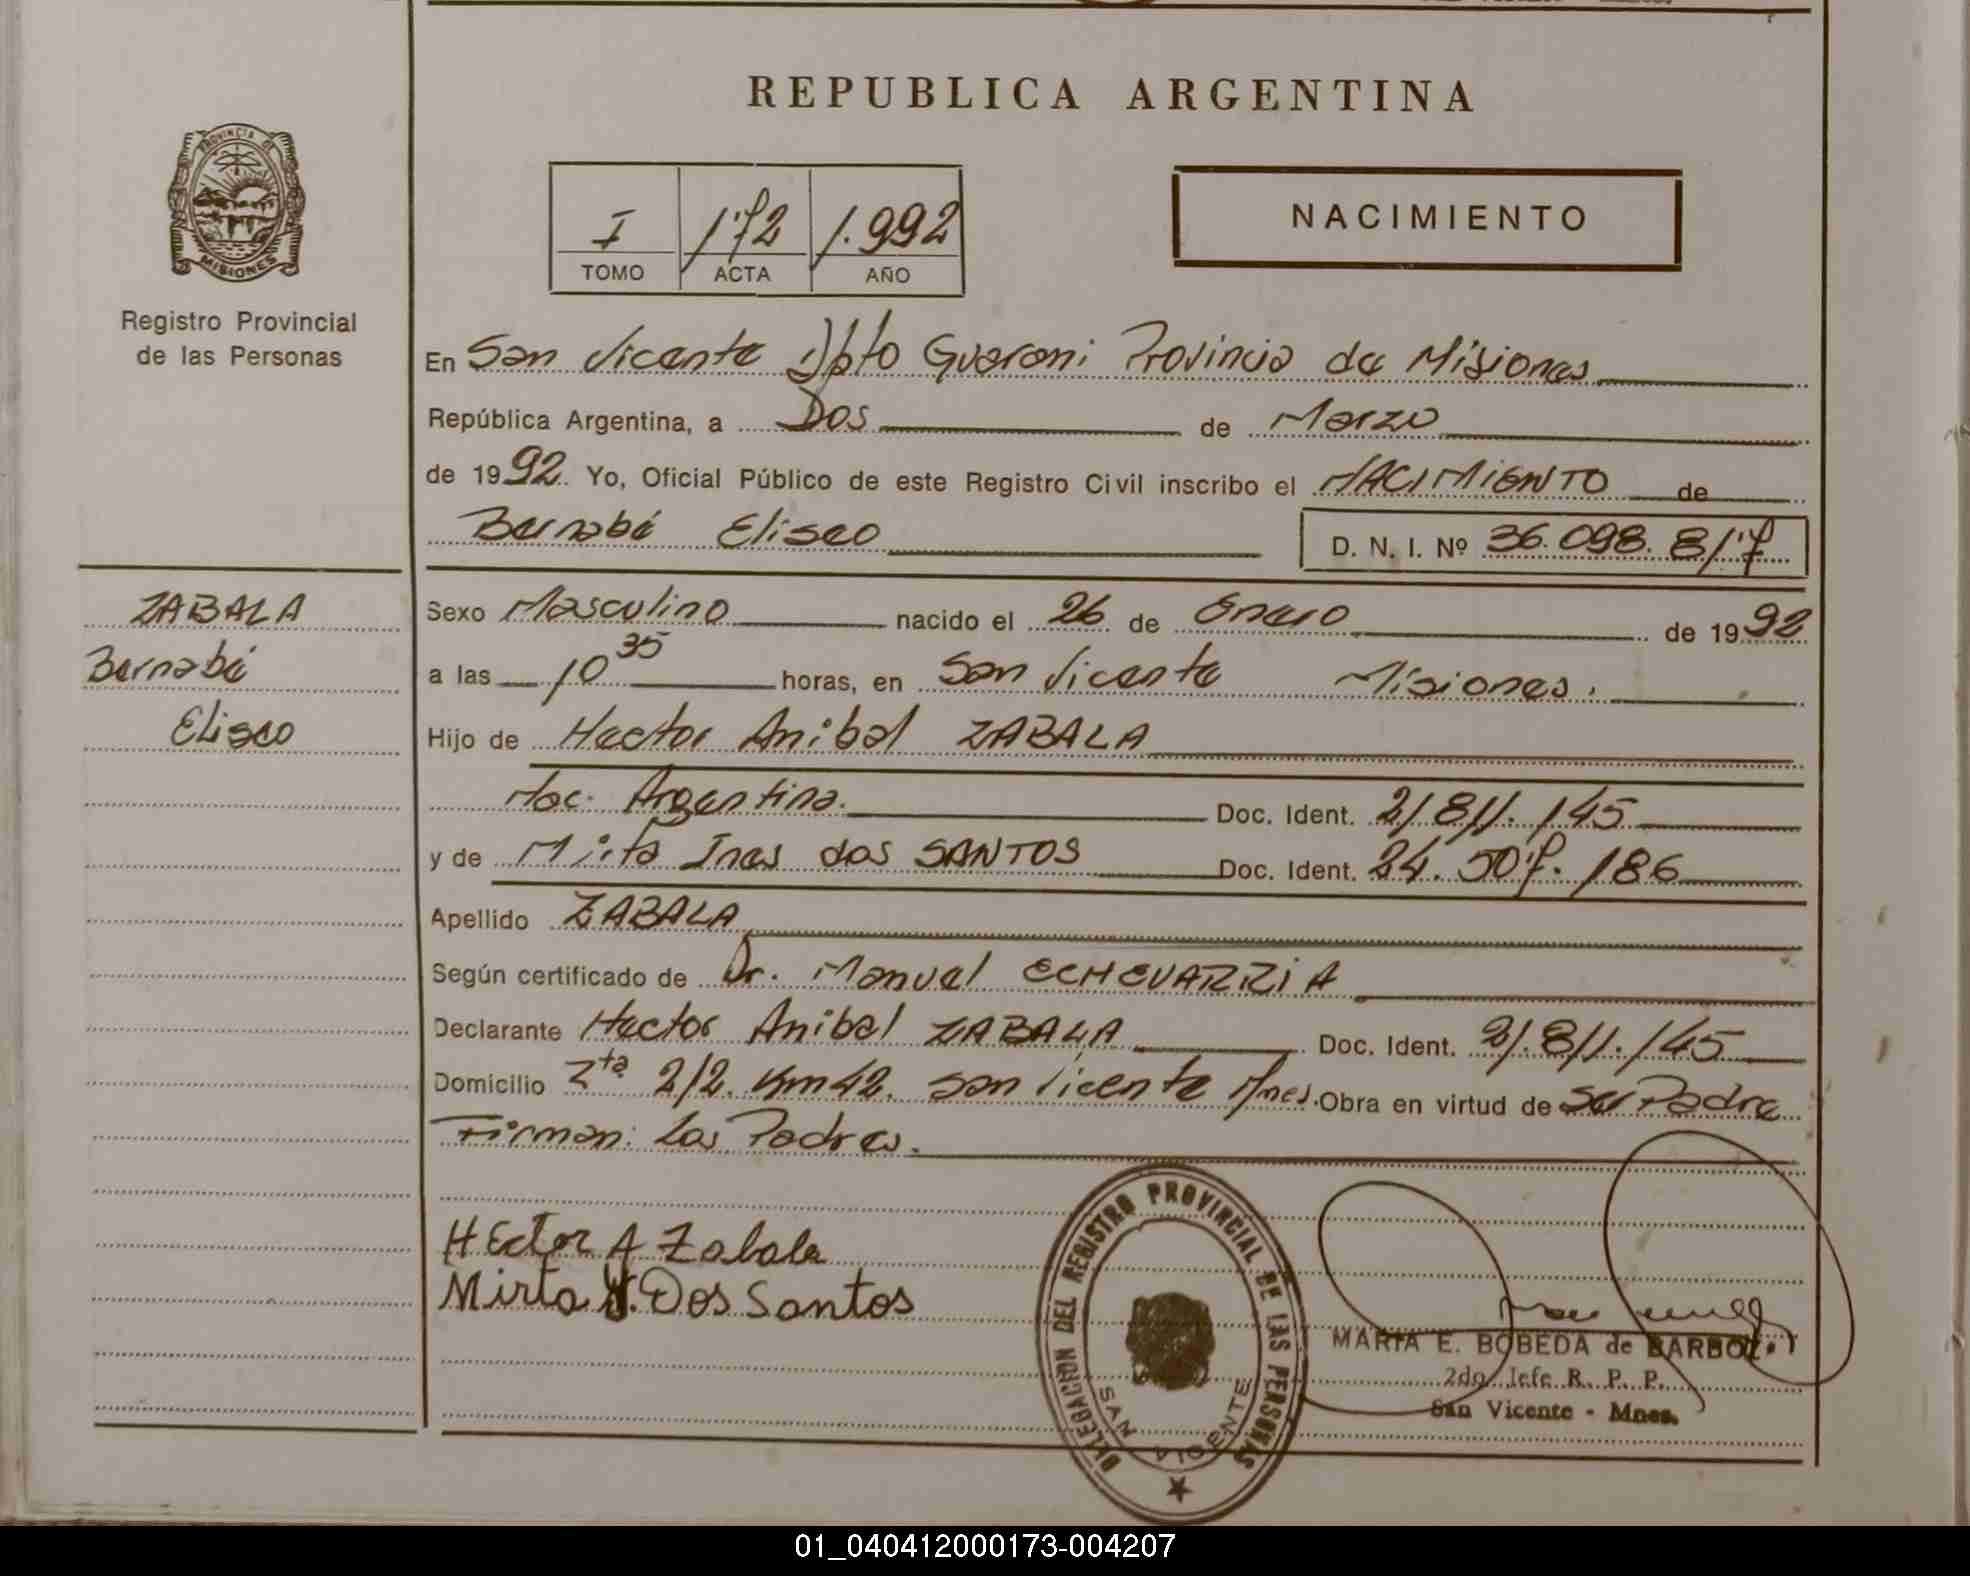 REPUBLICA ARGENTINA
PROVINCIA DE
MISIONES
Registro Provincial
de las Personas
I 172 1.992
TOMO ACTA AÑO
NACIMIENTO
En San Vicente Dpto Guarani Provincia de Misiones
República Argentina, a Dos de Marzo
de 1992. Yo, Oficial Público de este Registro Civil inscribo el NACIMIENTO de
Bernabé Eliseo D. N. I. Nº 36.098.817
ZABALA
Bernabé
Eliseo
Sexo Masculino nacido el 26 de Enero de 1992
a las 10 35 horas, en San Vicente Misiones.
Hijo de Hector Anibal ZABALA
Nac. Argentina. Doc. Ident. 21.811.145
y de Mirta Ines dos SANTOS Doc. Ident. 24.507.186
Apellido ZABALA
Según certificado de Dr. Manuel ECHEVARRIA
Declarante Hector Anibal ZABALA Doc. Ident. 21.811.145
Domicilio Rta 212. Km 42. San Vicente Mnes. Obra en virtud de Ser Padre
Firman: Los Padres.
HEctor A Zabala
Mirta . Dos Santos
DELEGACION DEL REGISTRO PROVINCIAL DE LAS PERSONAS
SAN VICENTE
MARIA E. BOBEDA de
2do. Jefe R. P. P.
San Vicente - Mnes.
01_040412000173-004207